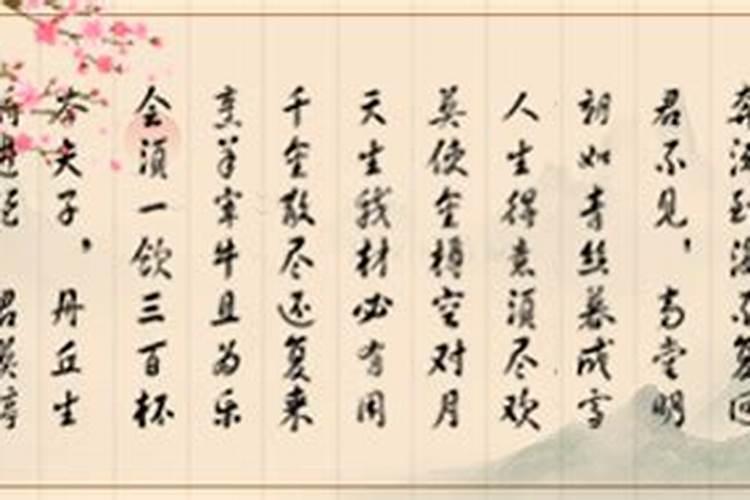 奔流到海不复回
君不见,高堂明
朝如青丝暮成雪
人生得意须尽欢
莫使金樽空对月
天生我材必有用
千金散尽还复来
烹羊宰牛且为乐
会须一饮三百杯
岑夫子,丹丘生
君莫停